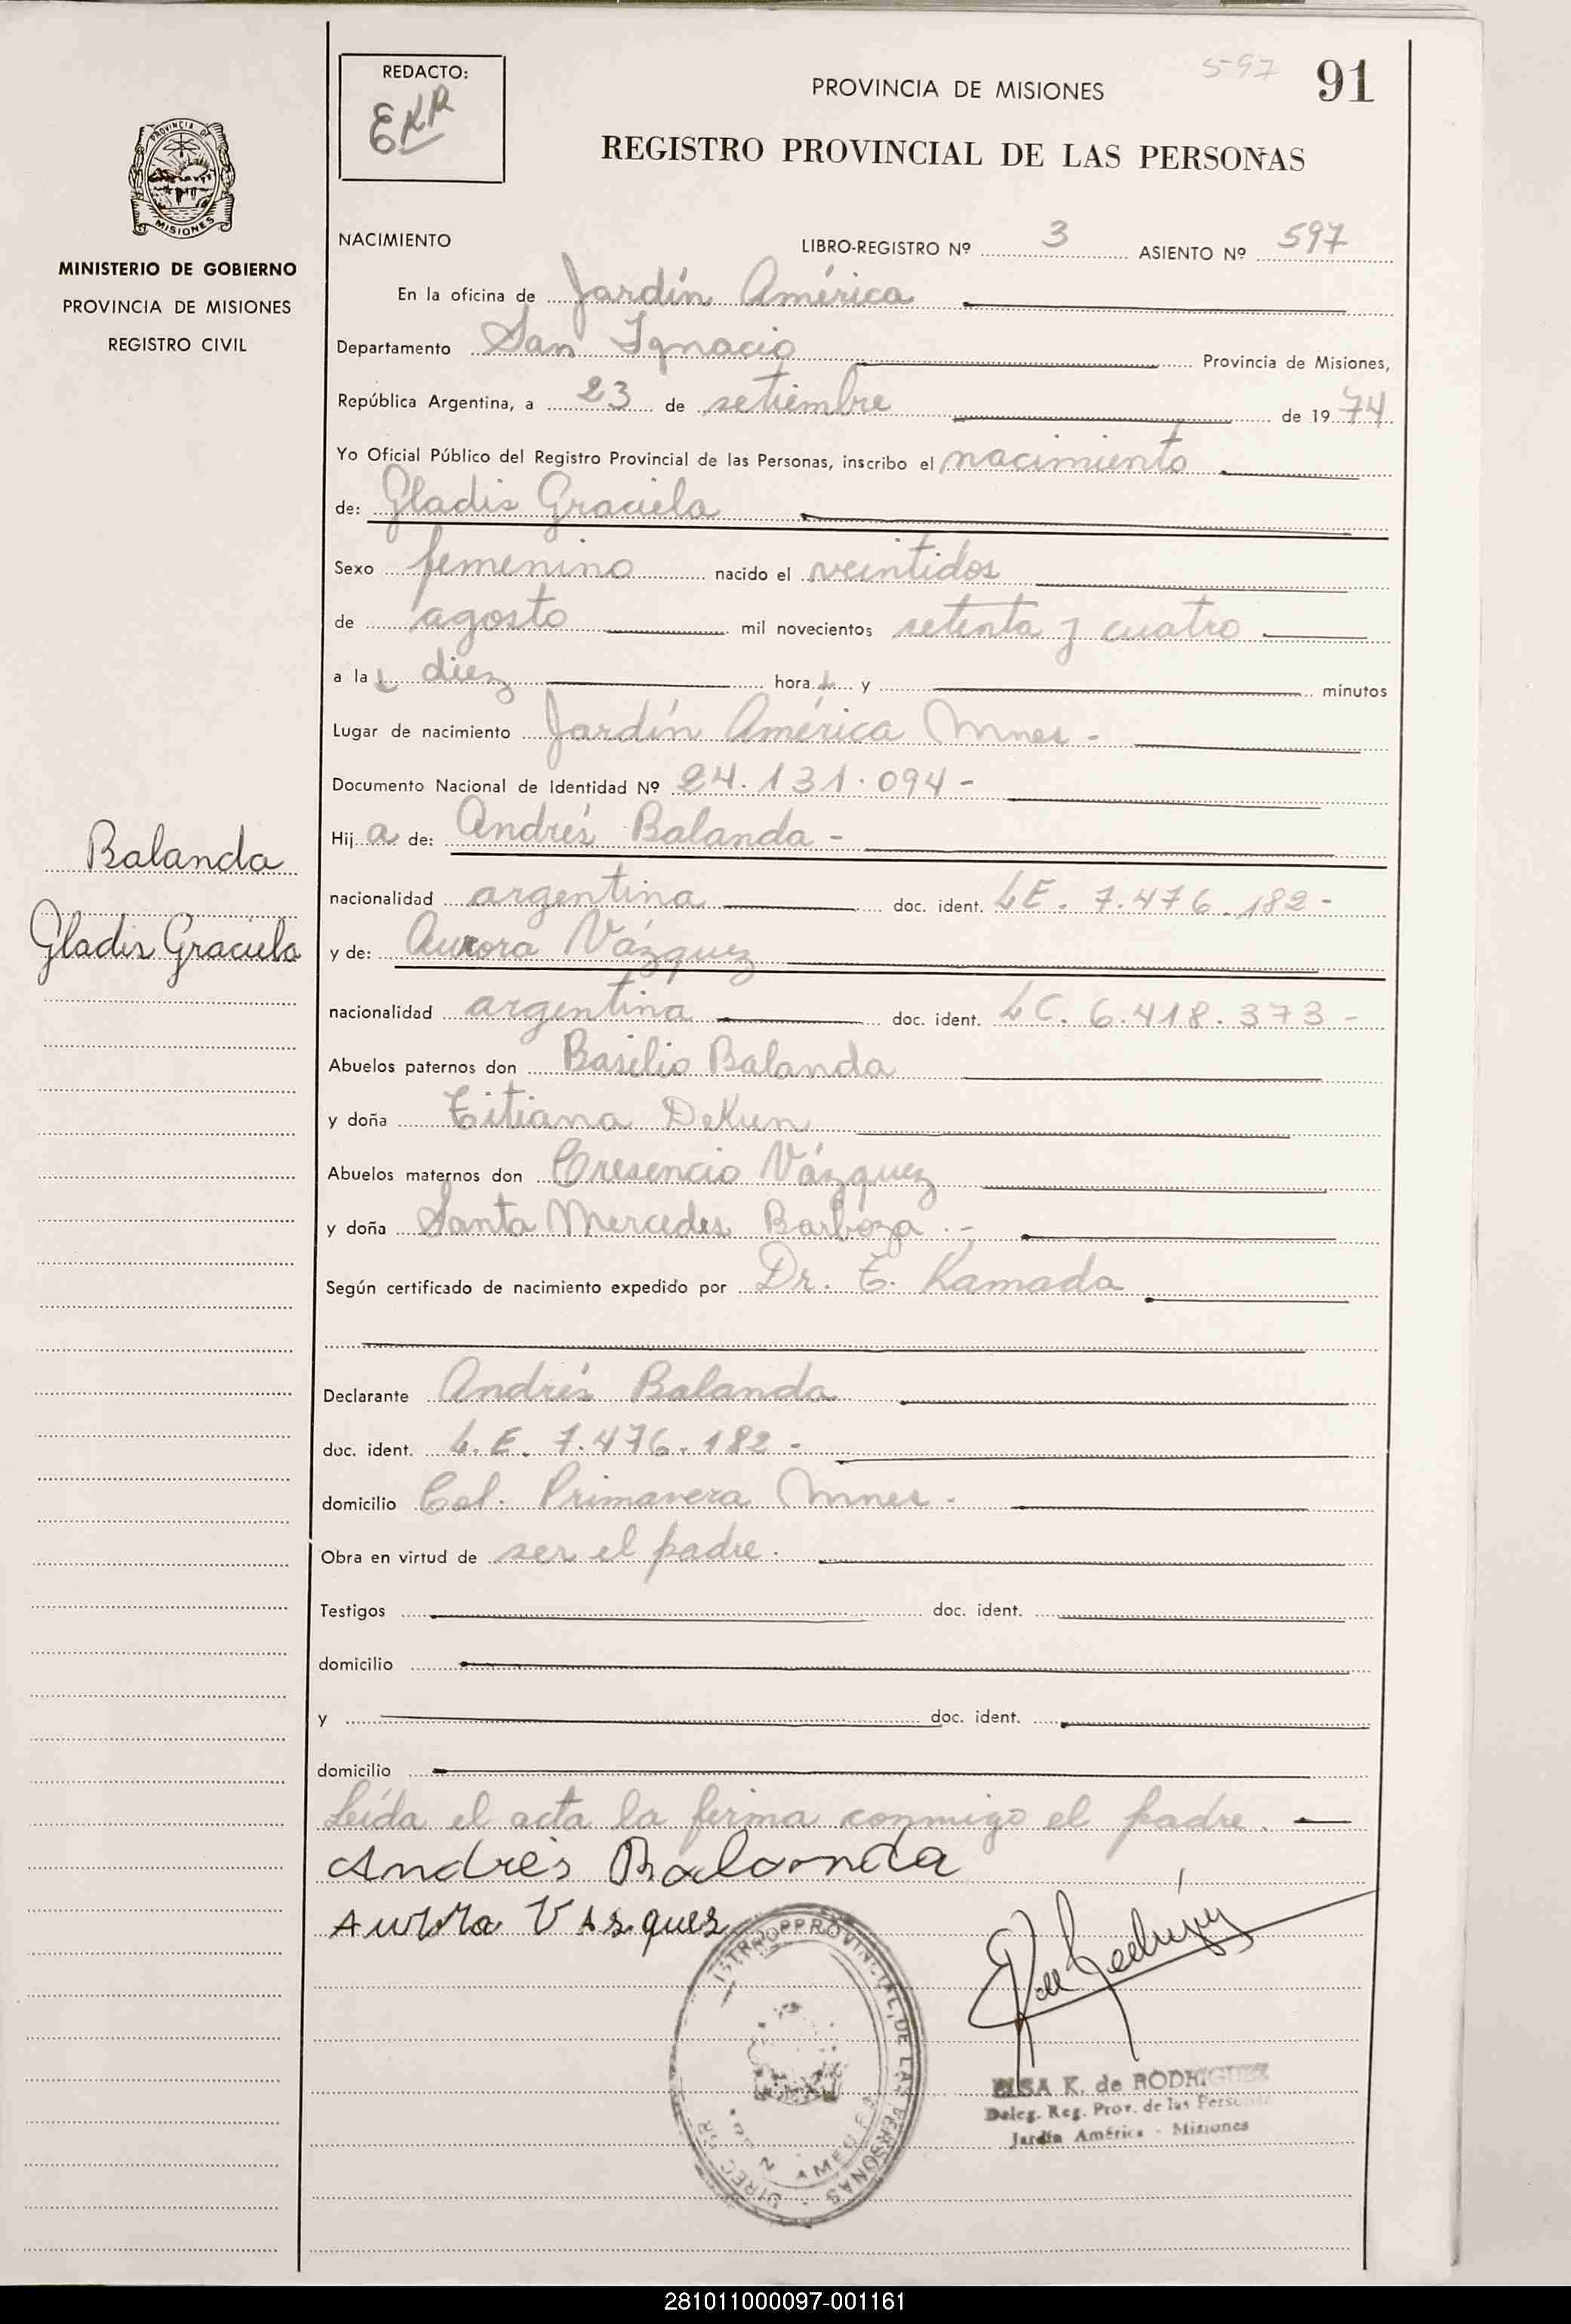 597
91
REDACTO:
EKR
PROVINCIA DE MISIONES
REGISTRO PROVINCIAL DE LAS PERSONAS
PROVINCIA DE
MISIONES
MINISTERIO DE GOBIERNO
PROVINCIA DE MISIONES
REGISTRO CIVIL
NACIMIENTO
LIBRO-REGISTRO Nº 3 ASIENTO Nº 597
En la oficina de Jardín América
Departamento San Ignacio Provincia de Misiones,
República Argentina, a 23 de setiembre de 1974
Yo Oficial Público del Registro Provincial de las Personas, inscribo el nacimiento
de: Gladis Graciela
Sexo femenino nacido el veintidos
de agosto mil novecientos setenta y cuatro
a las diez horas y minutos
Lugar de nacimiento Jardín América Mnes -
Documento Nacional de Identidad Nº 24.131.094 -
Hija de: Andrés Balanda -
Balanda
Gladis Graciela
nacionalidad argentina doc. ident. LE. 7.476.182 -
y de: Aurora Vázquez
nacionalidad argentina doc. ident. LC. 6.418.373 -
Abuelos paternos don Basilio Balanda
y doña Titiana DeKun
Abuelos maternos don Cresencio Vázquez
y doña Santa Mercedes Barboza .-
Según certificado de nacimiento expedido por Dr. T. Kamada
Declarante Andrés Balanda
doc. ident. L.E. 7.476.182 -
domicilio Col. Primavera Mnes -
Obra en virtud de ser el padre.
Testigos doc. ident.
domicilio
y doc. ident.
domicilio
Leída el acta la firma conmigo el padre.
Andrés Balanda
Aurora Vasques
PROVINCIAL DE LAS PERSONAS
ELSA K. de RODRIGUEZ
Deleg. Reg. Prov. de las Personas
Jardín América - Misiones
281011000097-001161